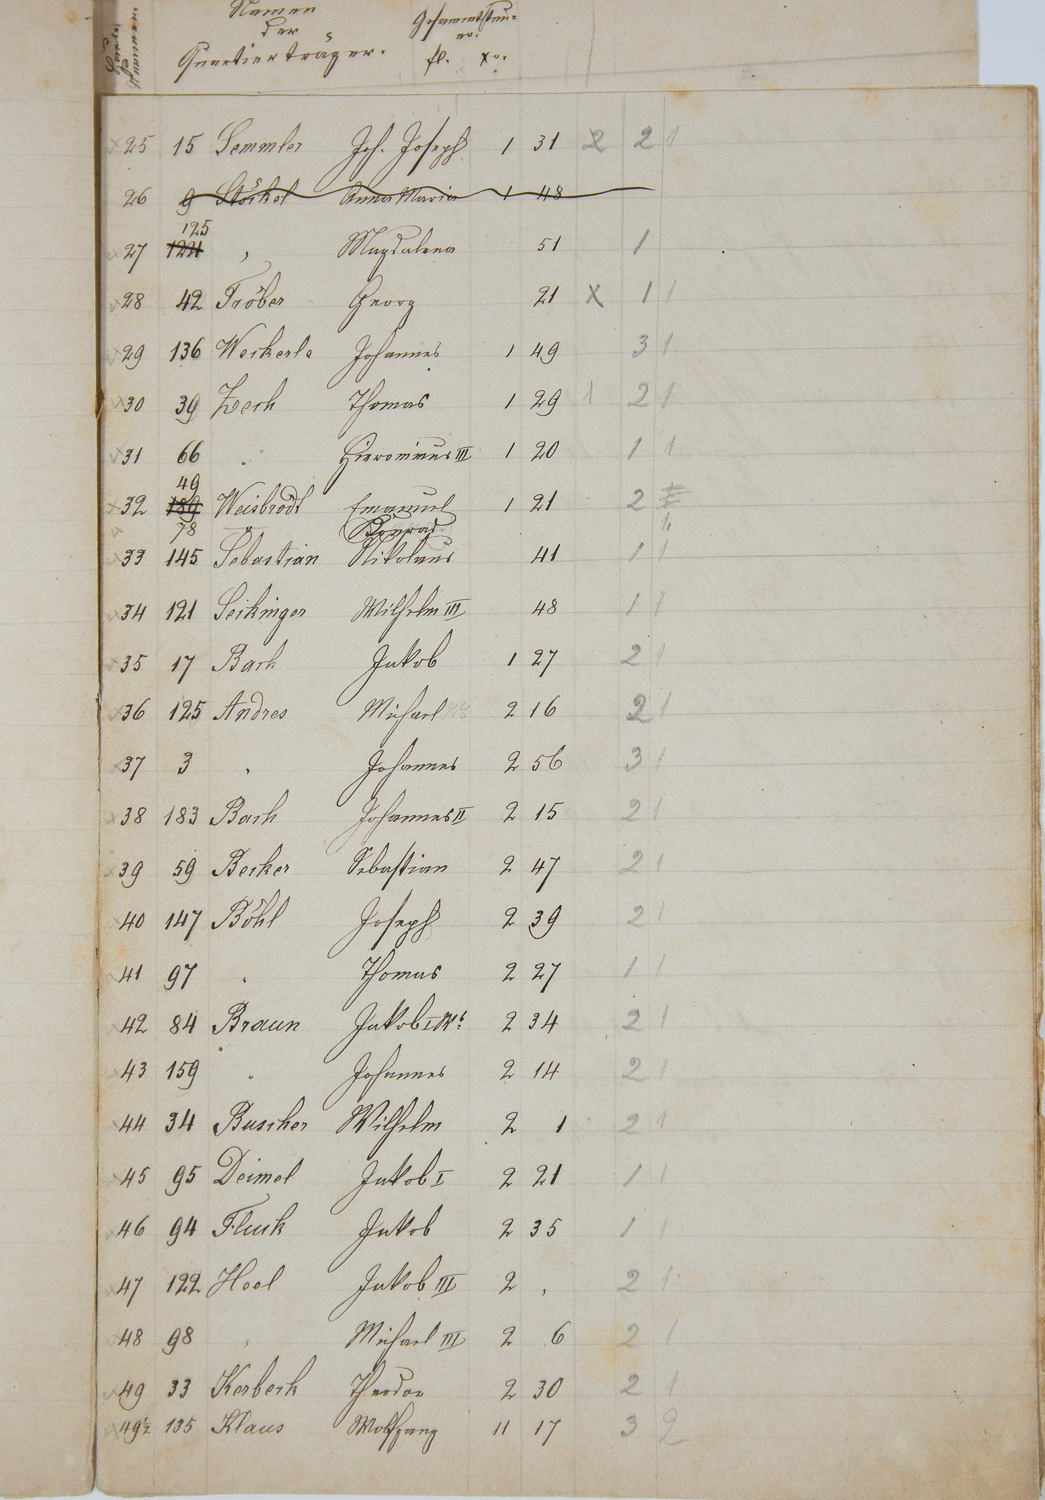 Namen
der
Quartierträger.
Gesammtsteu-
er.
fl. xr.
25 15 Semmler Joh. Joseph 1 31 x 2 1
26 9 Stöckel Anna Maria 1 48
125
27 124 " Magdalena 51 1
28 42 Tröber Georg 21 x 1 1
29 136 Weckerle Johannes 1 49 3 1
30 39 Zech Thomas 1 29 1 2 1
31 66 " Hieronimus III 1 20 1 1
49
32 189 Weisbrodt Emanuel 1 21 2
78 " Konrad
33 145 Sebastian Nikolaus 41 1 1
34 121 Seikinger Wilhelm III 48 1 1
35 17 Bach Jakob 1 27 2 1
36 125 Andres Michael 2 16 2 1
37 3 " Johannes 2 56 3 1
38 183 Bach Johannes II 2 15 2 1
39 59 Becker Sebastian 2 47 2 1
40 147 Böhl Joseph 2 39 2 1
41 97 " Thomas 2 27 1 1
42 84 Braun Jakob I Wb. 2 34 2 1
43 159 " Johannes 2 14 2 1
44 34 Buscher Wilhelm 2 1 2 1
45 95 Deimel Jakob I 2 21 1 1
46 94 Fluck Jakob 2 35 1 1
47 122 Hool Jakob III 2 . 2 1
48 98 " Michael III 2 6 2 1
49 33 Kerbeck Theodor 2 30 2 1
49½ 135 Klaus Wolfgang 11 17 3 2